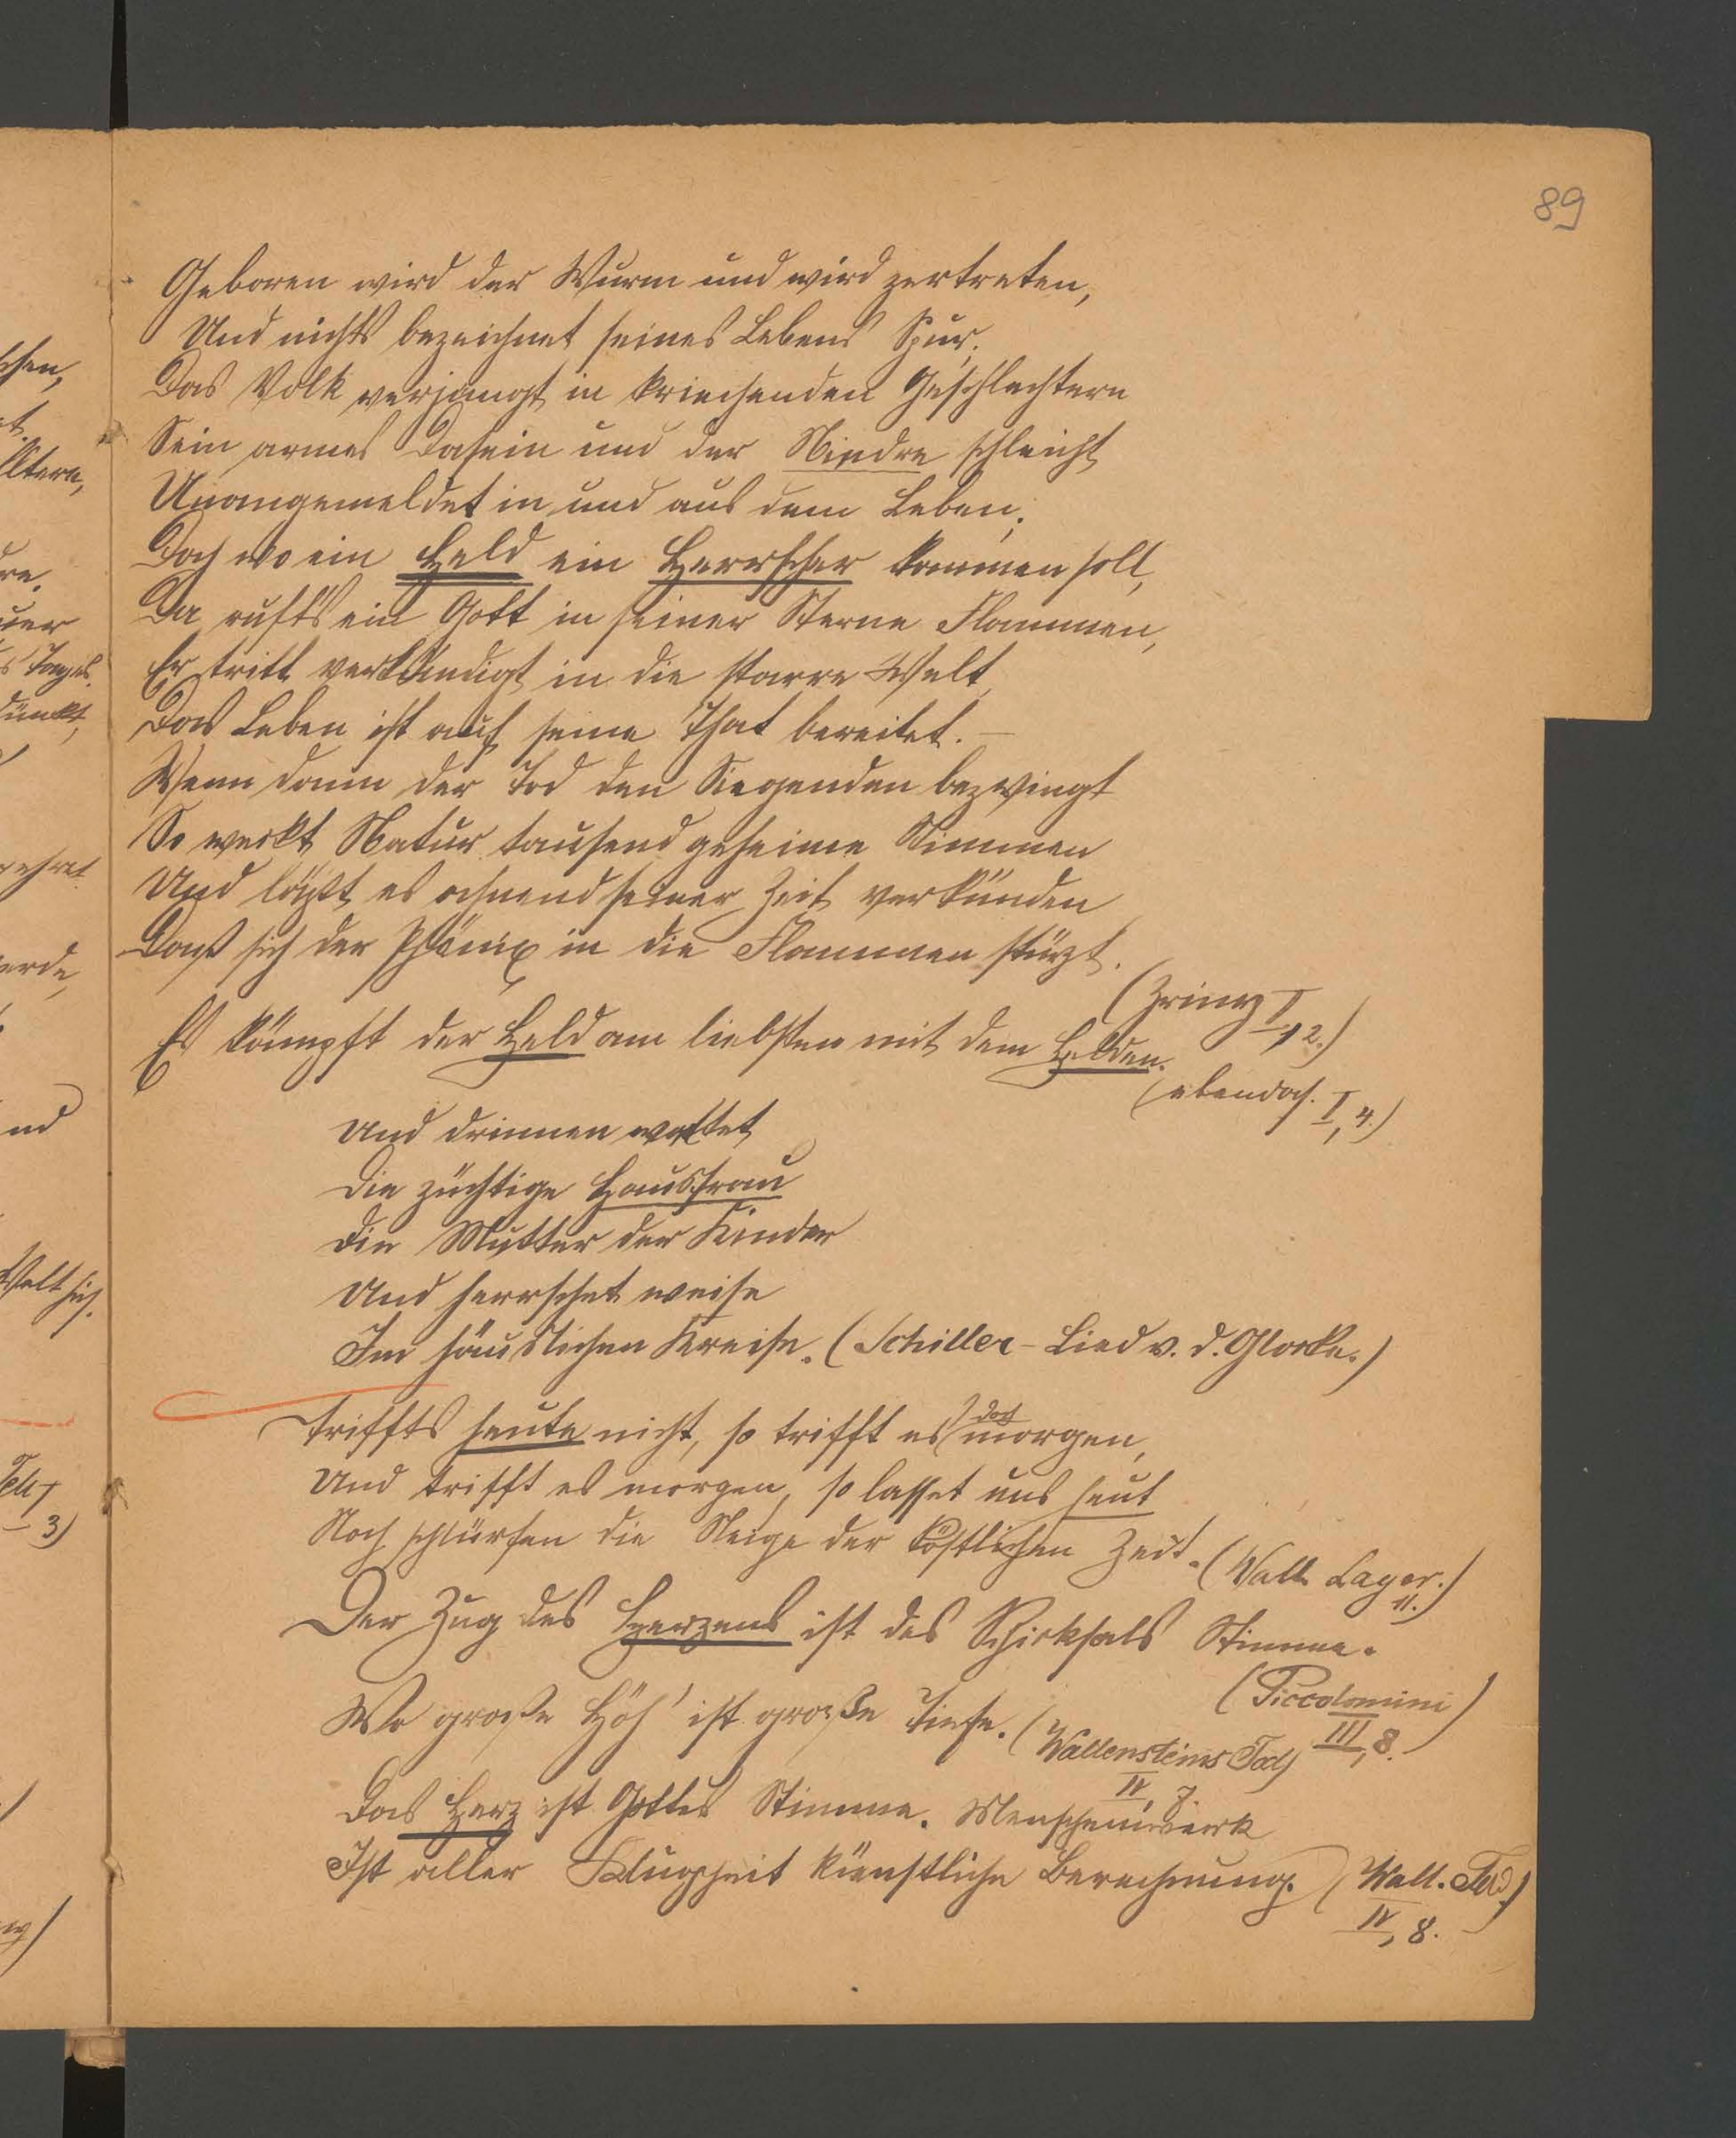 89
Geboren wird der Wurm und wird zertreten,
Und nichts bezeichnet seines Lebens Spur.
Das Volk verjüngt in kriechenden Geschlechtern
Sein armes Dasein und der Niedre schleicht
Unangemeldet in und aus dem Leben.
Doch wo ein Held ein Herrscher kommen soll,
Da rufts ein Gott in seiner Sterne Flammen,
Er tritt verkündigt in die starre Welt
Das Leben ist auf seine That bereitet. –
Wenn dann der Tod den Siegenden bezwingt
So weckt Natur tausend geheime Stimmen
Und läßt es ahnend seiner Zeit verkünden
Daß sich der Phönix in die Flammen stürzt.
(Zriny I, 2.)
Es kämpft der Held am liebsten mit dem Helden.
(ebendas. I, 4.)
Und drinnen waltet
Die züchtige Hausfrau
Die Mutter der Kinder
Und herrschet weise
Im häuslichen Kreise. (Schiller – Lied v. d. Glocke.)
Triffts heute nicht, so trifft es doch morgen,
Und trifft es morgen, so lasset uns heut
Noch schlürfen die Neige der köstlichen Zeit. (Wall. Lager. 11.)
Der Zug des Herzens ist des Schicksals Stimme.
(Piccolomini III, 8.)
Wo große Höh' ist große Tiefe. (Wallensteins Tod IV, 7.
Das Herz ist Gottes Stimme. Menschenwerk
Ist aller Klugheit künstliche Berechnung. (Wall. Tod)
IV, 8.